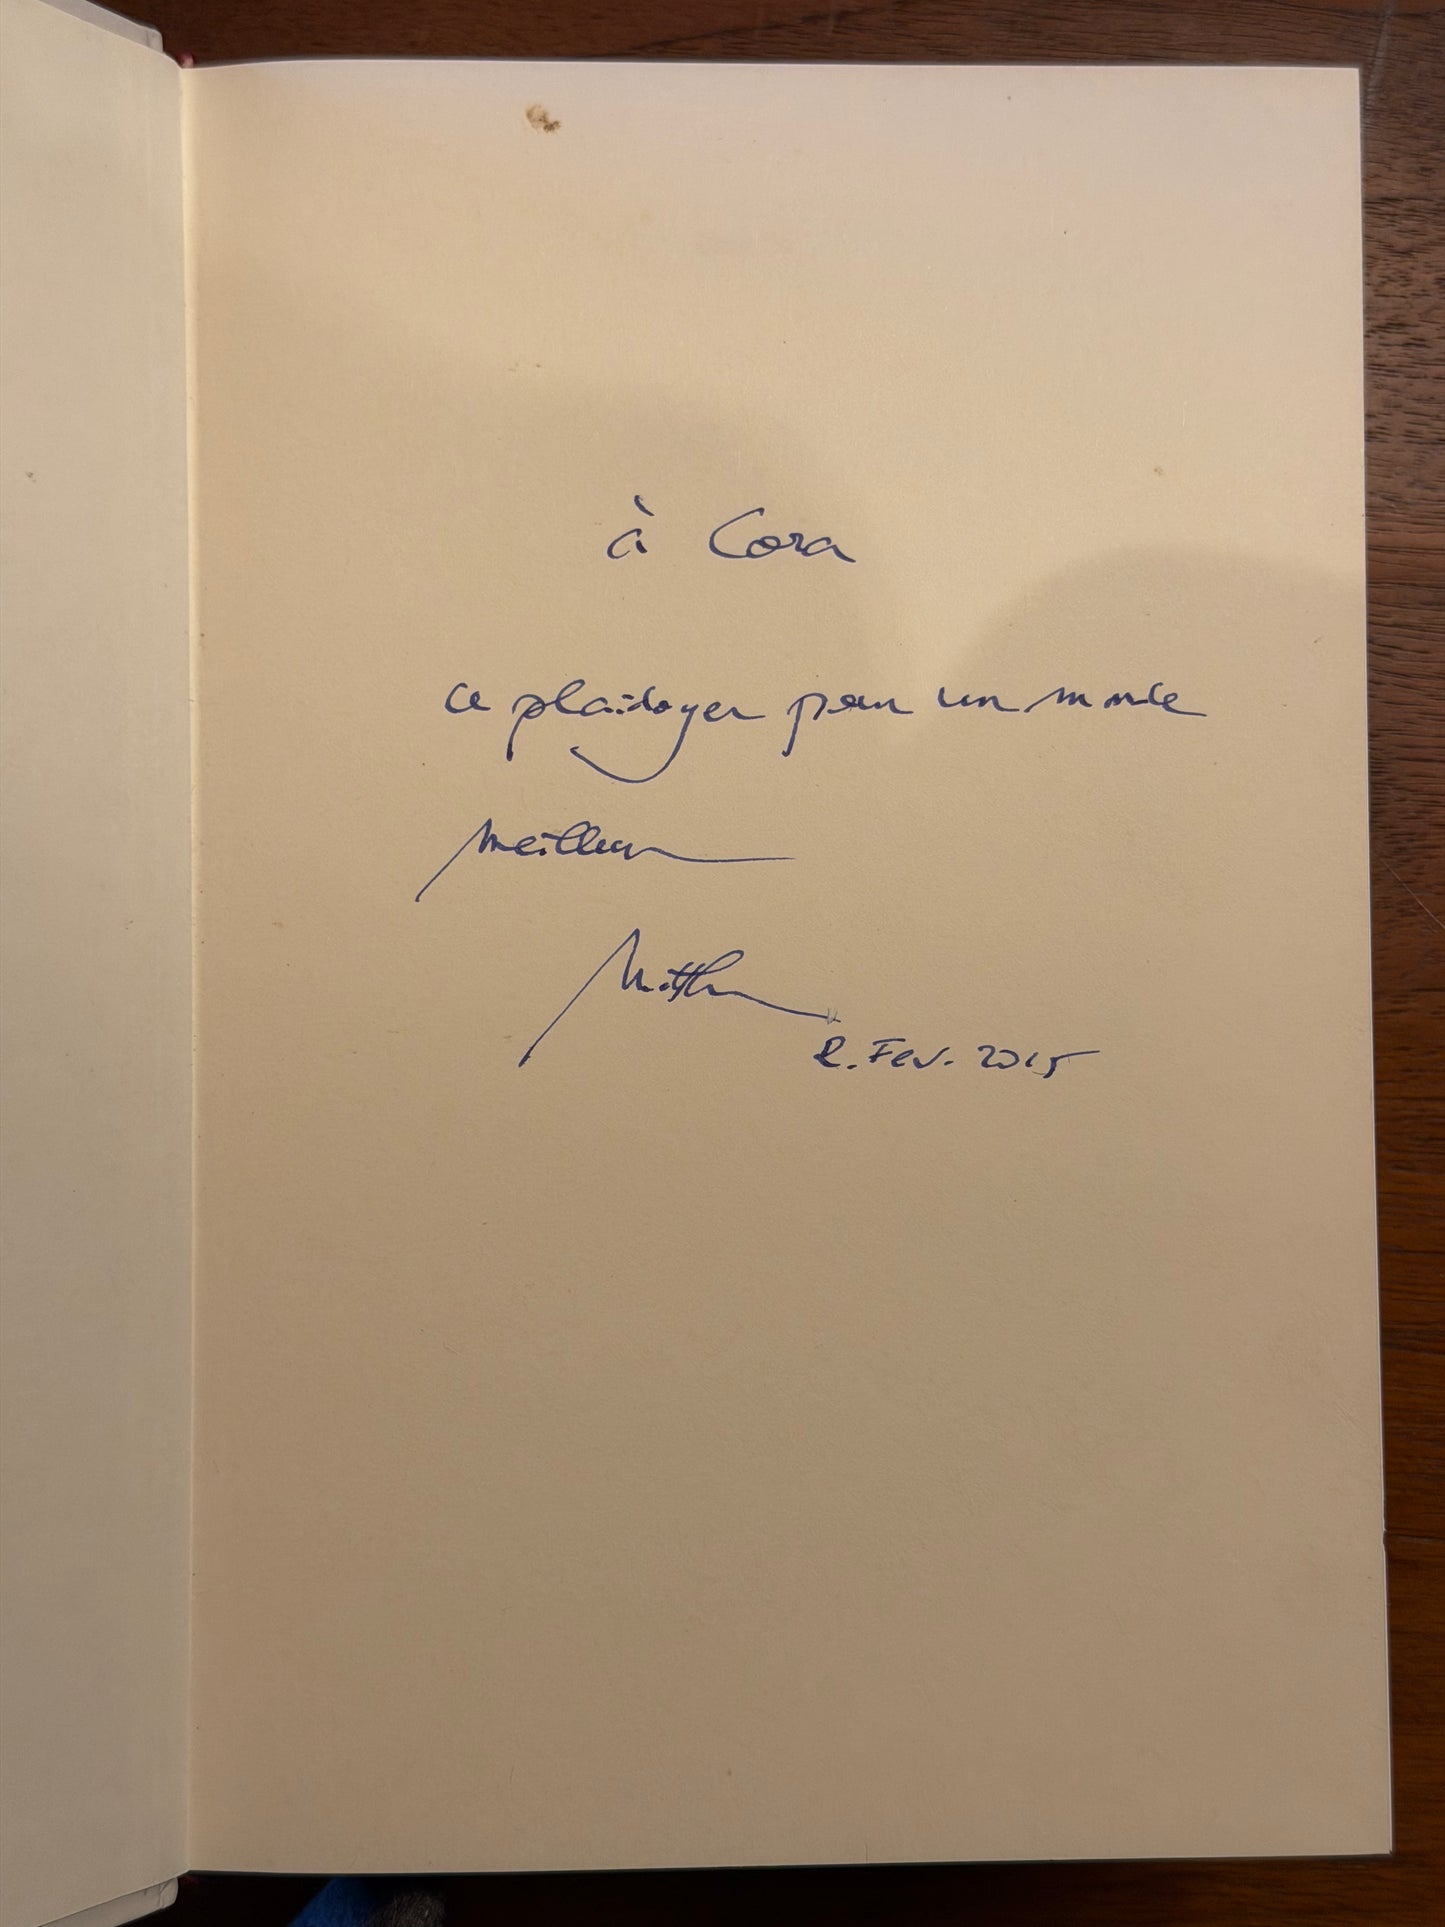 à Cora
ce plaidoyer pour un monde
meilleur
Matthieu
2. Fev. 2015